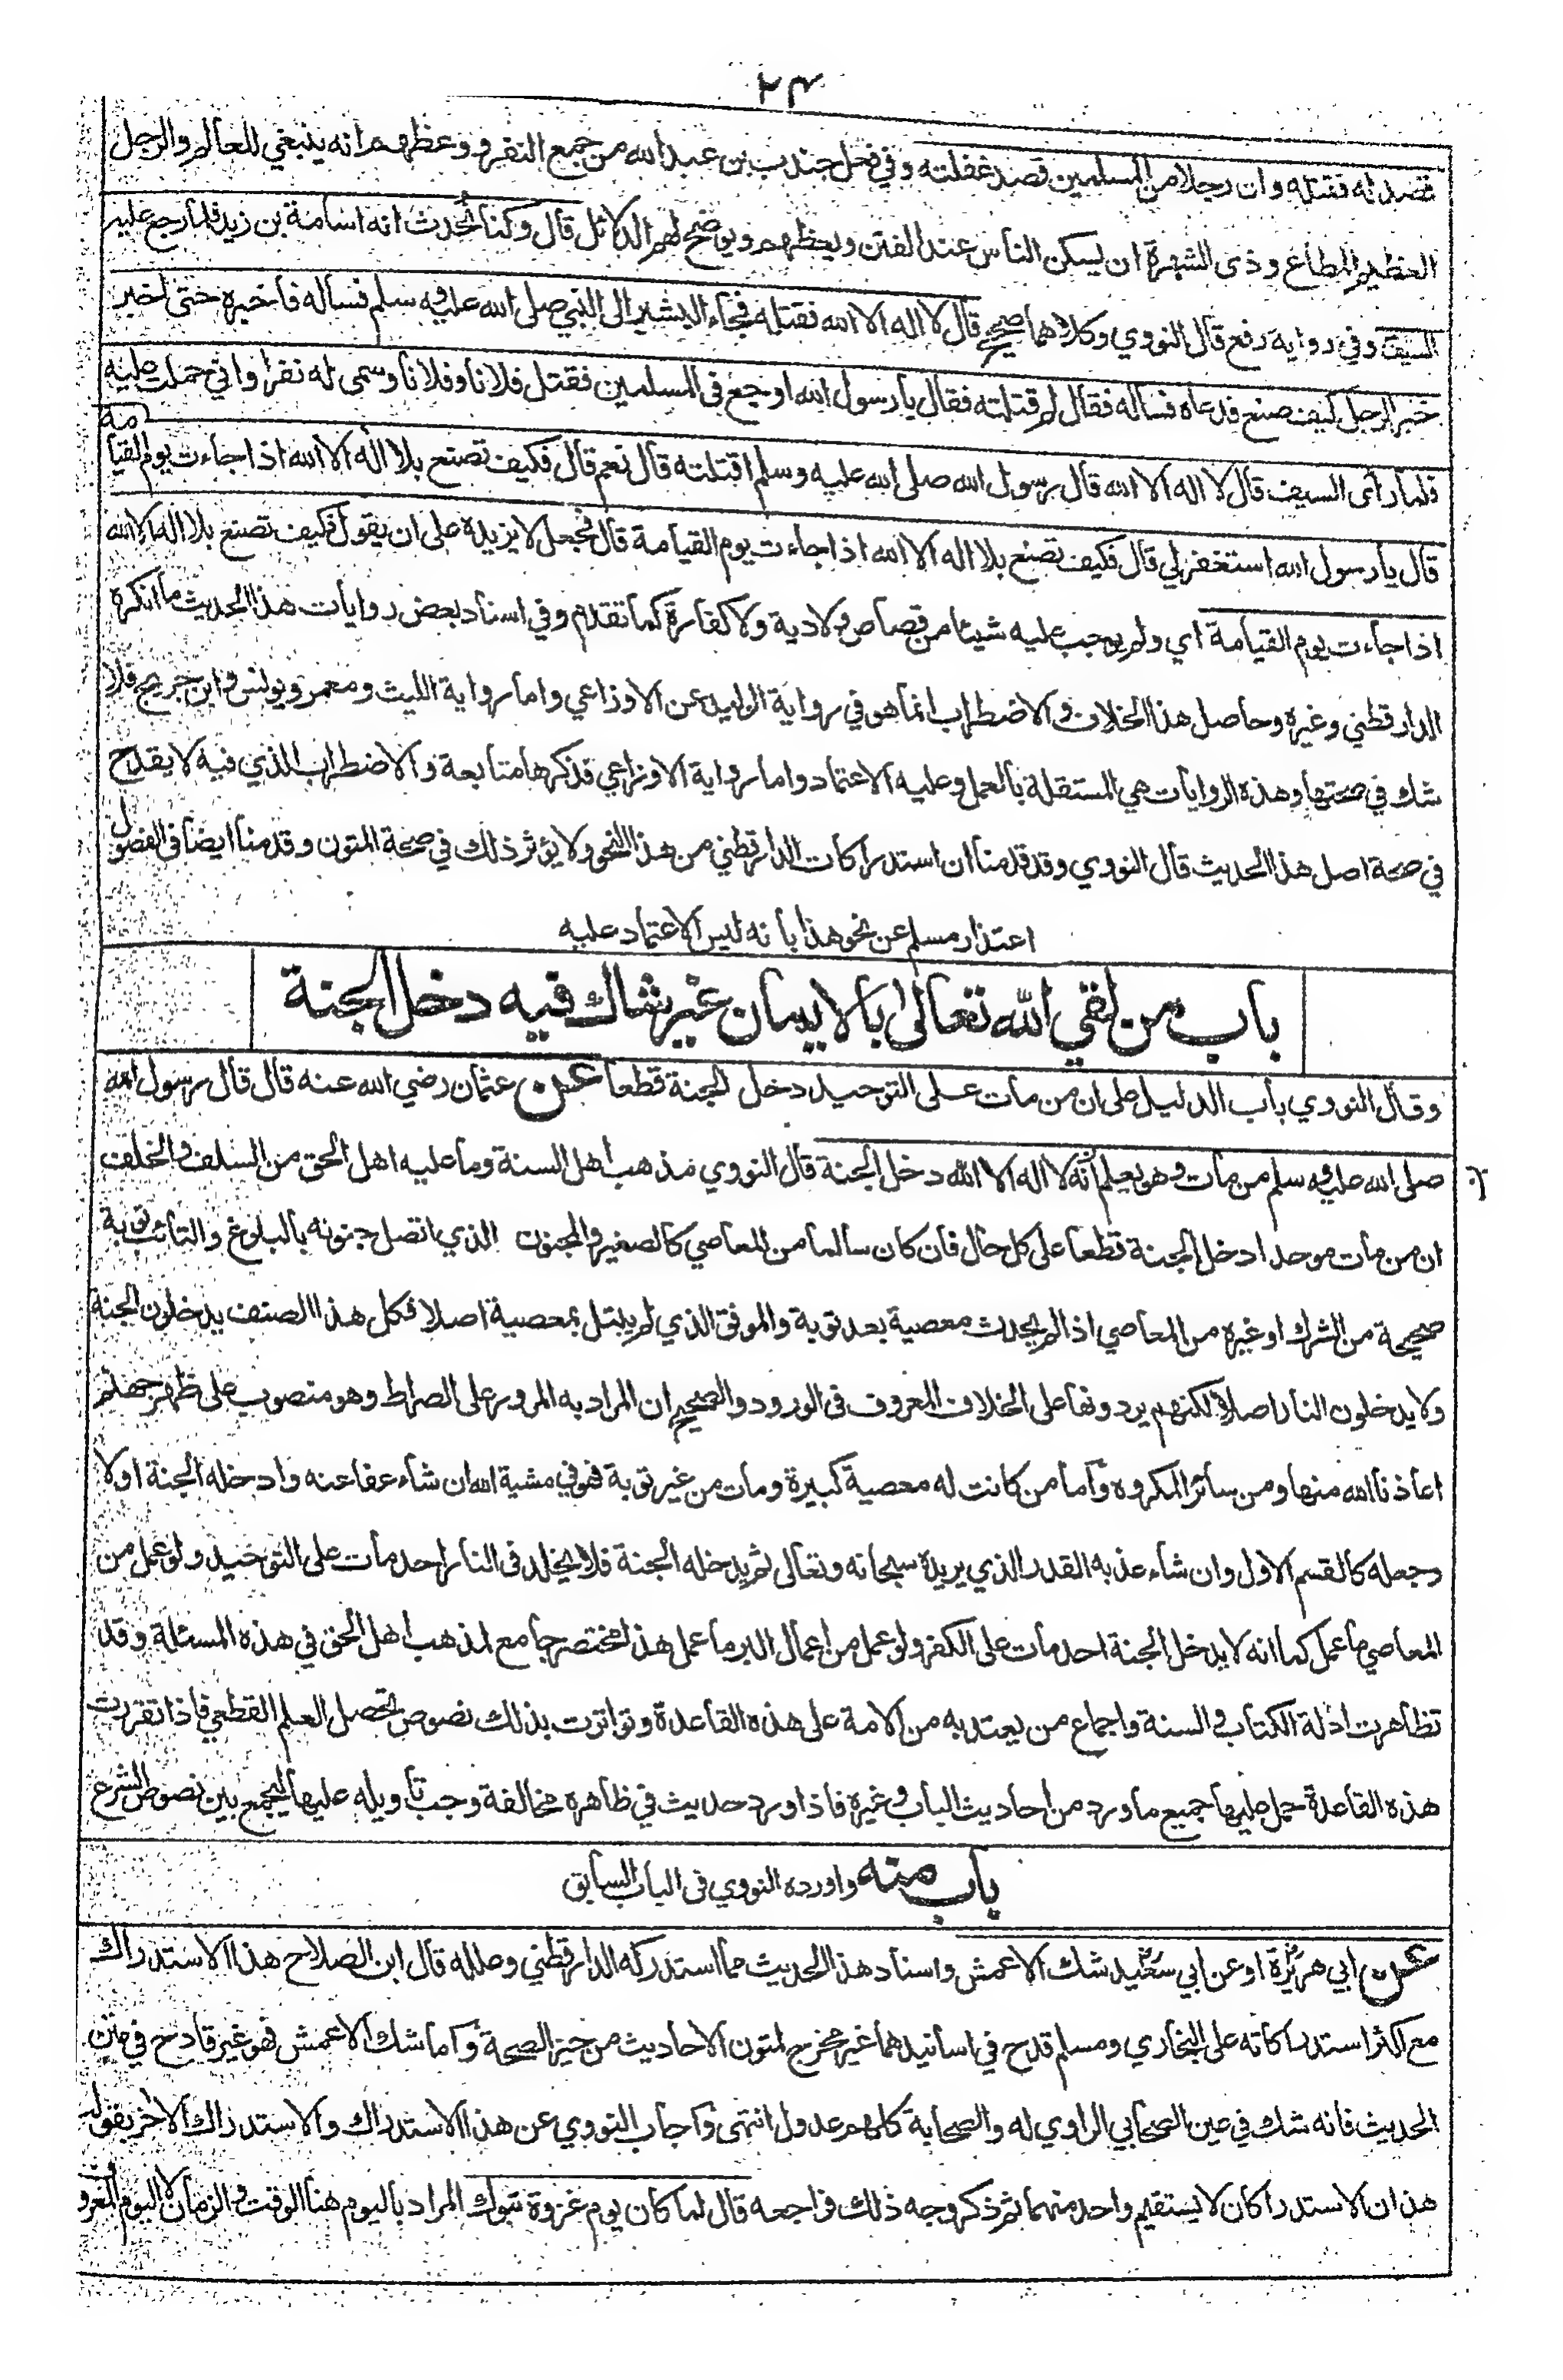 ٢٤
قصد له فقتله وان رجلا من المسلمين قصد غفلته وفي فعل جندب بن عبد الله من جمع النفر ووعظهم انه ينبغي للعالم والرجل
العظيم المطاع وذى الشهرة ان يسكن الناس عند الفتن ويعظهم ويوضح لهم الدلائل قال وكنا نُحدث انه اسامة بن زيد فلما رجع عليه
السيف وفي رواية رفع قال النووي وكلاهما صحيح قال لا اله الا الله فقتله فجاء البشير الى النبي صلى الله عليه وسلم فسأله فأخبره حتى اخبره
خبر الرجل كيف صنع فدعاه فسأله فقال لم قتلته فقال يا رسول الله اوجع فى المسلمين فقتل فلانا وفلانا وسمى له نفرا واني حملت عليه
فلما رأى السيف قال لا اله الا الله قال رسول الله صلى الله عليه وسلم اقتلته قال نعم قال فكيف تصنع بلا اله الا الله اذا جاءت يوم القيامة
قال يا رسول الله استغفر لي قال فكيف تصنع بلا اله الا الله اذا جاءت يوم القيامة قال فجعل لا يزيده على ان يقول فكيف تصنع بلا اله الا الله
اذا جاءت يوم القيامة اي ولم يوجب عليه شيئا من قصاص ولا دية ولا كفارة كما تقدم وفي اسناد بعض روايات هذا الحديث ما انكره
الدارقطني وغيره وحاصل هذا الخلاف والاضطراب انما هو في رواية الوليد عن الاوزاعي واما رواية الليث ومعمر ويونس وابن جريج فلا
شك في صحتها وهذه الروايات هي المستقلة بالعمل وعليه الاعتماد واما رواية الاوزاعي فذكرها متابعة والاضطراب الذي فيه لا يقدح
في صحة اصل هذا الحديث قال النووي وقد قدمنا ان استدراكات الدارقطني من هذا النحو ولا يؤثر ذلك في صحة المتون وقدمنا ايضا فى الفصول
اعتذار مسلم عن نحو هذا بأنه ليس الاعتماد عليه
باب من لقي الله تعالى بالايمان غير شاك فيه دخل الجنة
وقال النووي باب الدليل على ان من مات على التوحيد دخل الجنة قطعا عن عثمان رضي الله عنه قال قال رسول الله
صلى الله عليه وسلم من مات وهو يعلم انه لا اله الا الله دخل الجنة قال النووي مذهب اهل السنة وما عليه اهل الحق من السلف والخلف
ان من مات موحدا دخل الجنة قطعا على كل حال فان كان سالما من المعاصي كالصغير والمجنون الذي اتصل جنونه بالبلوغ والتائب توبة
صحيحة من الشرك او غيره من المعاصي اذا لم يحدث معصية بعد توبة والموفق الذي لم يبتل بمعصية اصلا فكل هذا الصنف يدخلون الجنة
ولا يدخلون النار اصلا لكنهم يردونها على الخلاف المعروف فى الورود والصحيح ان المراد به المرور على الصراط وهو منصوب على ظهر جهنم
اعاذنا الله منها ومن سائر المكروه وأما من كانت له معصية كبيرة ومات من غير توبة فهو في مشية الله ان شاء عفا عنه وادخله الجنة اولا
وجعله كالقسم الاول وان شاء عذبه القدر الذي يريده سبحانه وتعالى ثم يدخله الجنة فلا يخلد فى النار احد مات على التوحيد ولو عمل من
المعاصي ما عمل كما انه لا يدخل الجنة احد مات على الكفر ولو عمل من اعمال البر ما عمل هذا مختصر جامع لمذهب اهل الحق في هذه المسئلة وقد
تظاهرت ادلة الكتاب والسنة واجماع من يعتد به من الامة على هذه القاعدة وتواترت بذلك نصوص تحصل العلم القطعي فاذا تقررت
هذه القاعدة حمل عليها جميع ما ورد من احاديث الباب وغيره فاذا ورد حديث في ظاهره مخالفة وجب تأويله عليها ليجمع بين نصوص الشرع
باب منه واورده النووي فى الباب السابق
عن ابي هريرة او عن ابي سعيد شك الاعمش واسناد هذا الحديث مما استدركه الدارقطني وعلله قال ابن الصلاح هذا الاستدراك
مع اكثر استدراكاته على البخاري ومسلم قدح في اسانيدهما غير مخرج لمتون الاحاديث من حيز الصحة وأما شك الاعمش فهو غير قادح في متن
الحديث فانه شك في عين الصحابي الراوي له والصحابة كلهم عدول انتهى واجاب النووي عن هذا الاستدراك والاستدراك الاخر بقوله
هذان الاستدراكان لا يستقيم واحد منهما ثم ذكر وجه ذلك فراجعه قال لما كان يوم غزوة تبوك المراد باليوم هنا الوقت والزمان لا اليوم المعرو